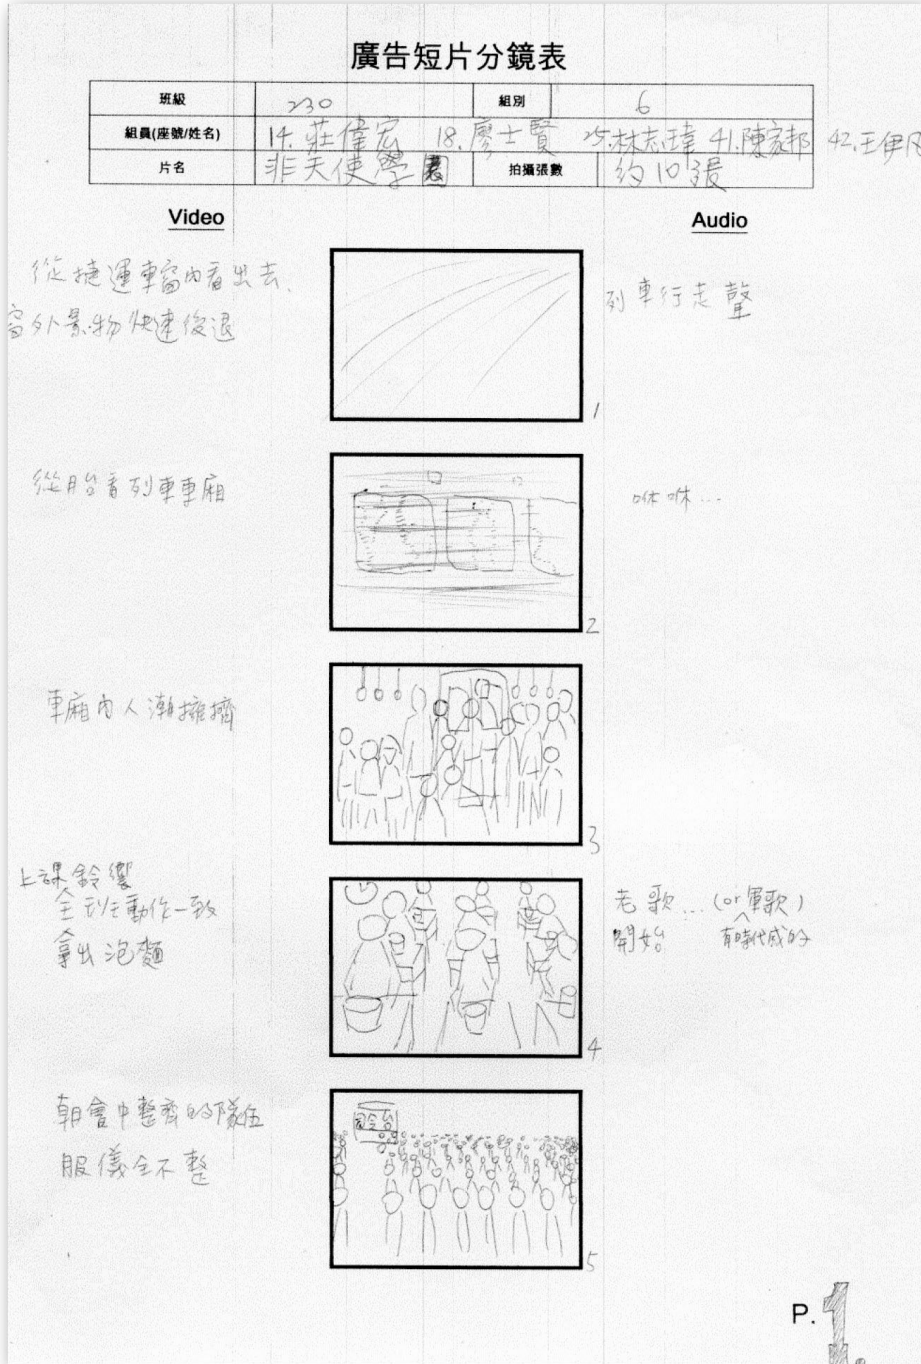 廣告短片分鏡表
班級 230 組別 6
組員(座號/姓名) 14.莊偉宏 18.廖士賢 25.林志瑋 41.陳家邦 42.王伊凡
片名 非天使學園 拍攝張數 約10張
Video Audio
從捷運車窗內看出去.
窗外景物快速後退
列車行走聲
1
從月台看列車車廂
咻咻...
2
車廂內人潮擁擠
3
上課鈴響
全班動作一致
拿出泡麵
老歌...(or軍歌)
開始 有時代感的
4
朝會中整齊的隊伍
服儀全不整
司令台
5
P.1